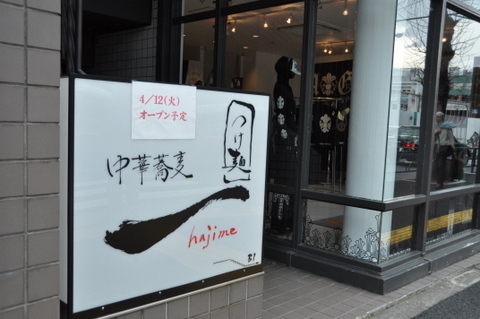 4/12(火)
オープン予定
つけ麺
中華蕎麦
一
hajime
B1